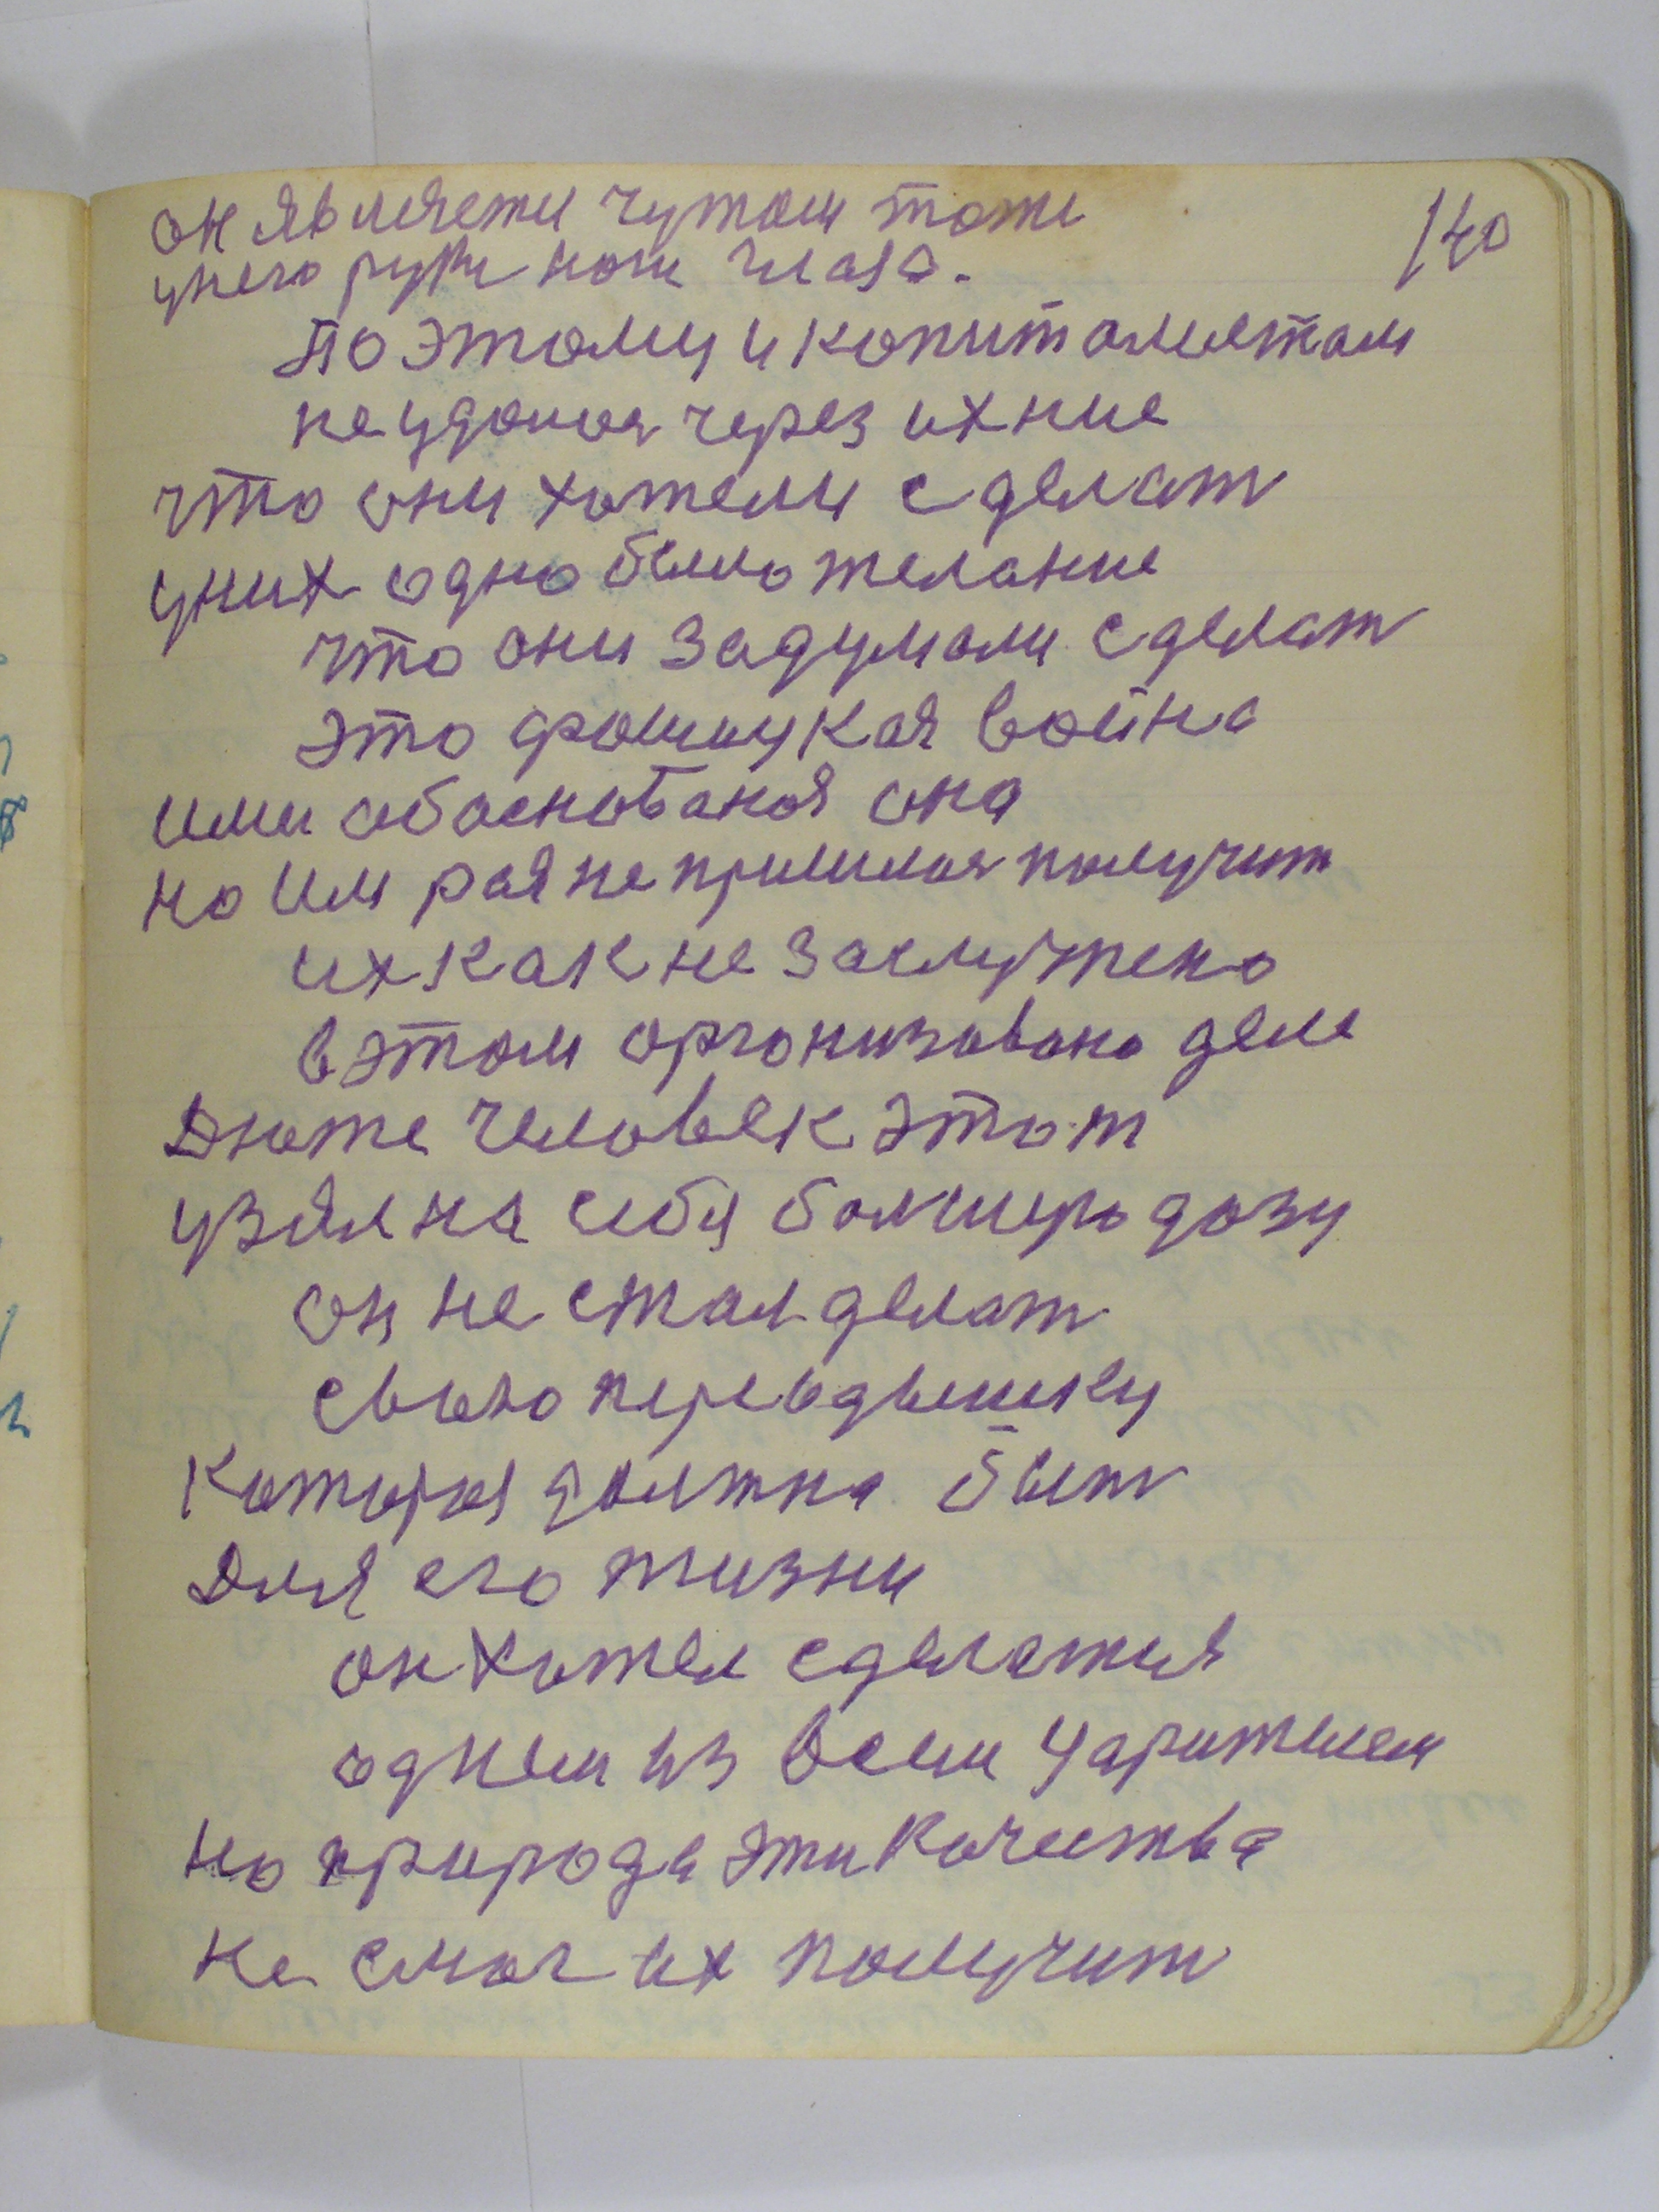 140
он является чутом тоже
унего руки ноги глаза.
поэтому и копитолистам
неудолся через ихние
что они хотели сделат
уних одно было желание
что они задумали сделат
это фошиская война
ими обоснованоя она
но им рая не пришлося получит
их как не заслужено
вэтом оргонизовано деле
Дюже человек этот
узял на себя болшую дозу
он не стал делат
свою передышку
которая должна быт
Для его жизни
он хотел сделатся
одним из всем
но природе эти качества
не смог их получит